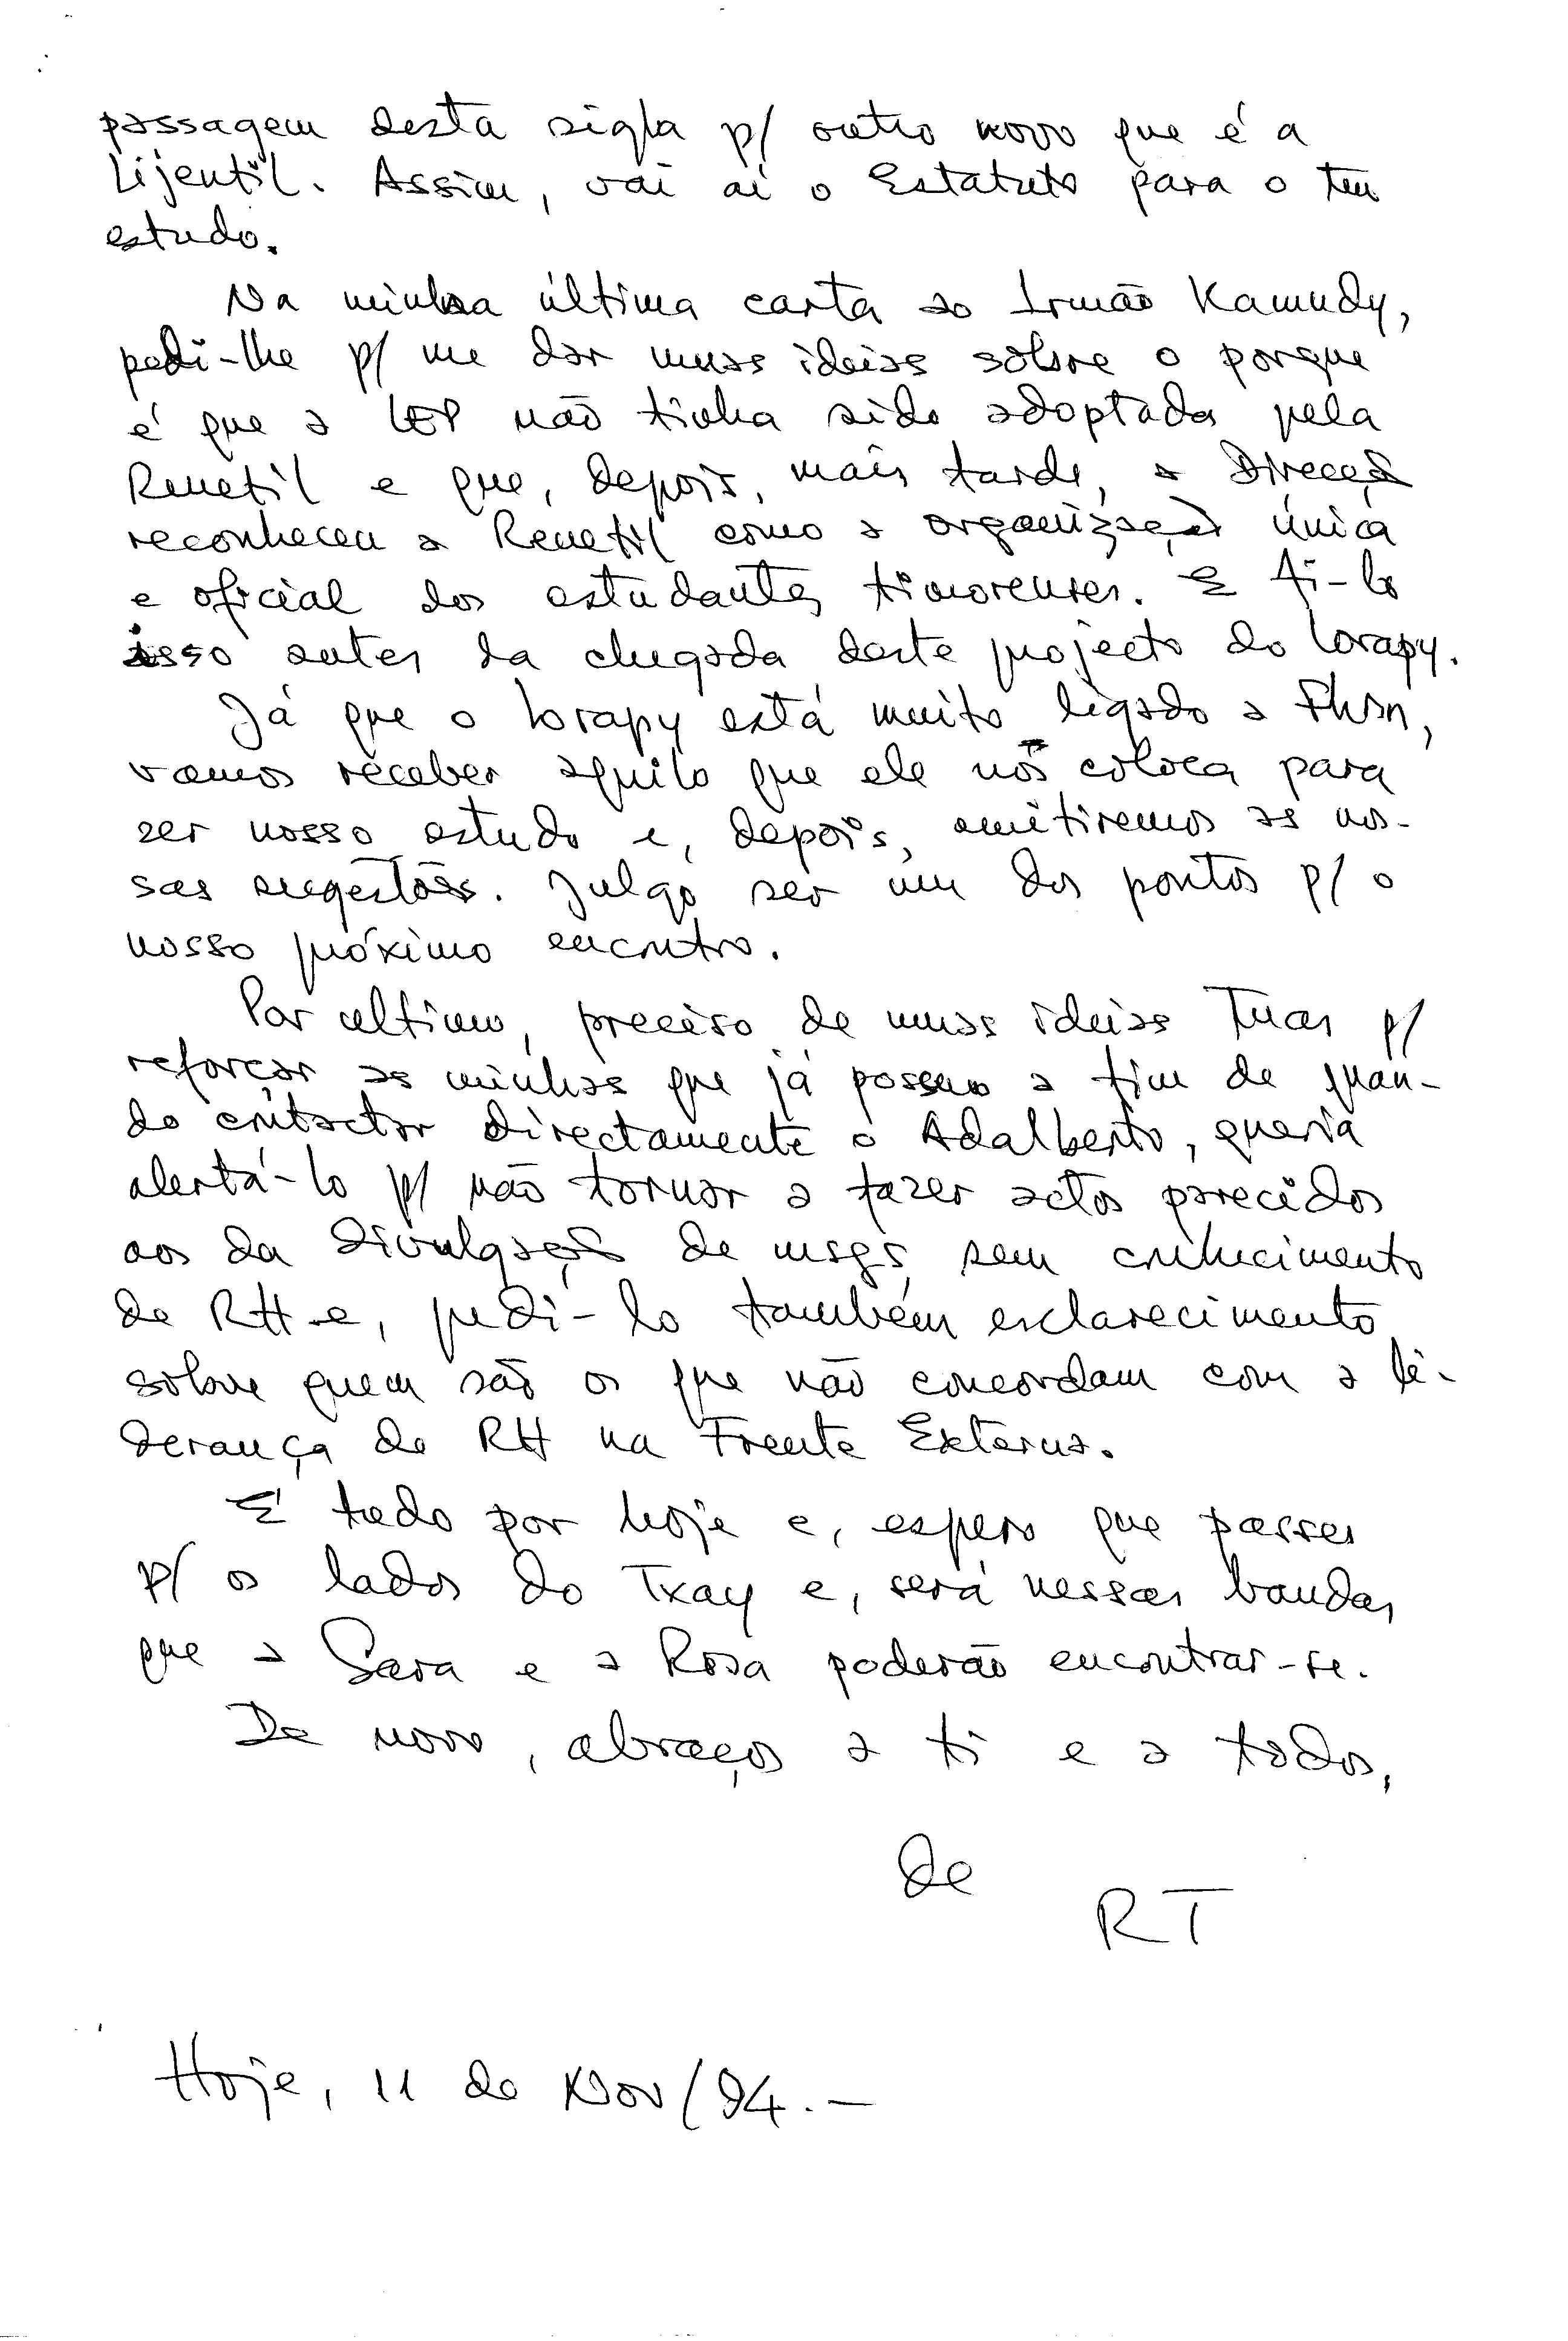 passagem desta sigla p/ outro novo que é a
Lijentil. Assim, vai aí o Estatuto para o teu
estudo.
Na minha última carta ao Irmão Kamudy,
pedi-lhe p/ me dar umas ideias sobre o porque
é que a LEP não tinha sido adoptada pela
Renetil e que, depois, mais tarde, a Direcção
reconheceu a Renetil como a organização única
e oficial dos estudantes timorenses. E fi-lo
isso antes da chegada deste projecto do Lorapy.
Já que o Lorapy está muito ligado a
vamos receber aquilo que ele nos coloca para
ser nosso estudo e, depois, emitiremos as nos-
sas sugestões. Julgo ser um dos pontos p/ o
nosso próximo encontro.
Por ultimo, preciso de umas ideias tuas p/
reforçar as minhas que já possuo a fim de quan-
do contactar directamente o Adalberto, queria
alertá-lo p/ não tornar a fazer actos parecidos
aos da divulgação de msgs, sem conhecimento
de RH e, pedi-lo também esclarecimento
sobre quem são os que não concordam com a li-
derança de RH na Frente Externa.
É tudo por hoje e, espero que passes
p/ os lados do Txay e, será nessas bandas
que a Sara e a Rosa poderão encontrar-se.
De novo, abraços a ti e a todos,
de
RT
Hoje, 11 de Nov/94.-